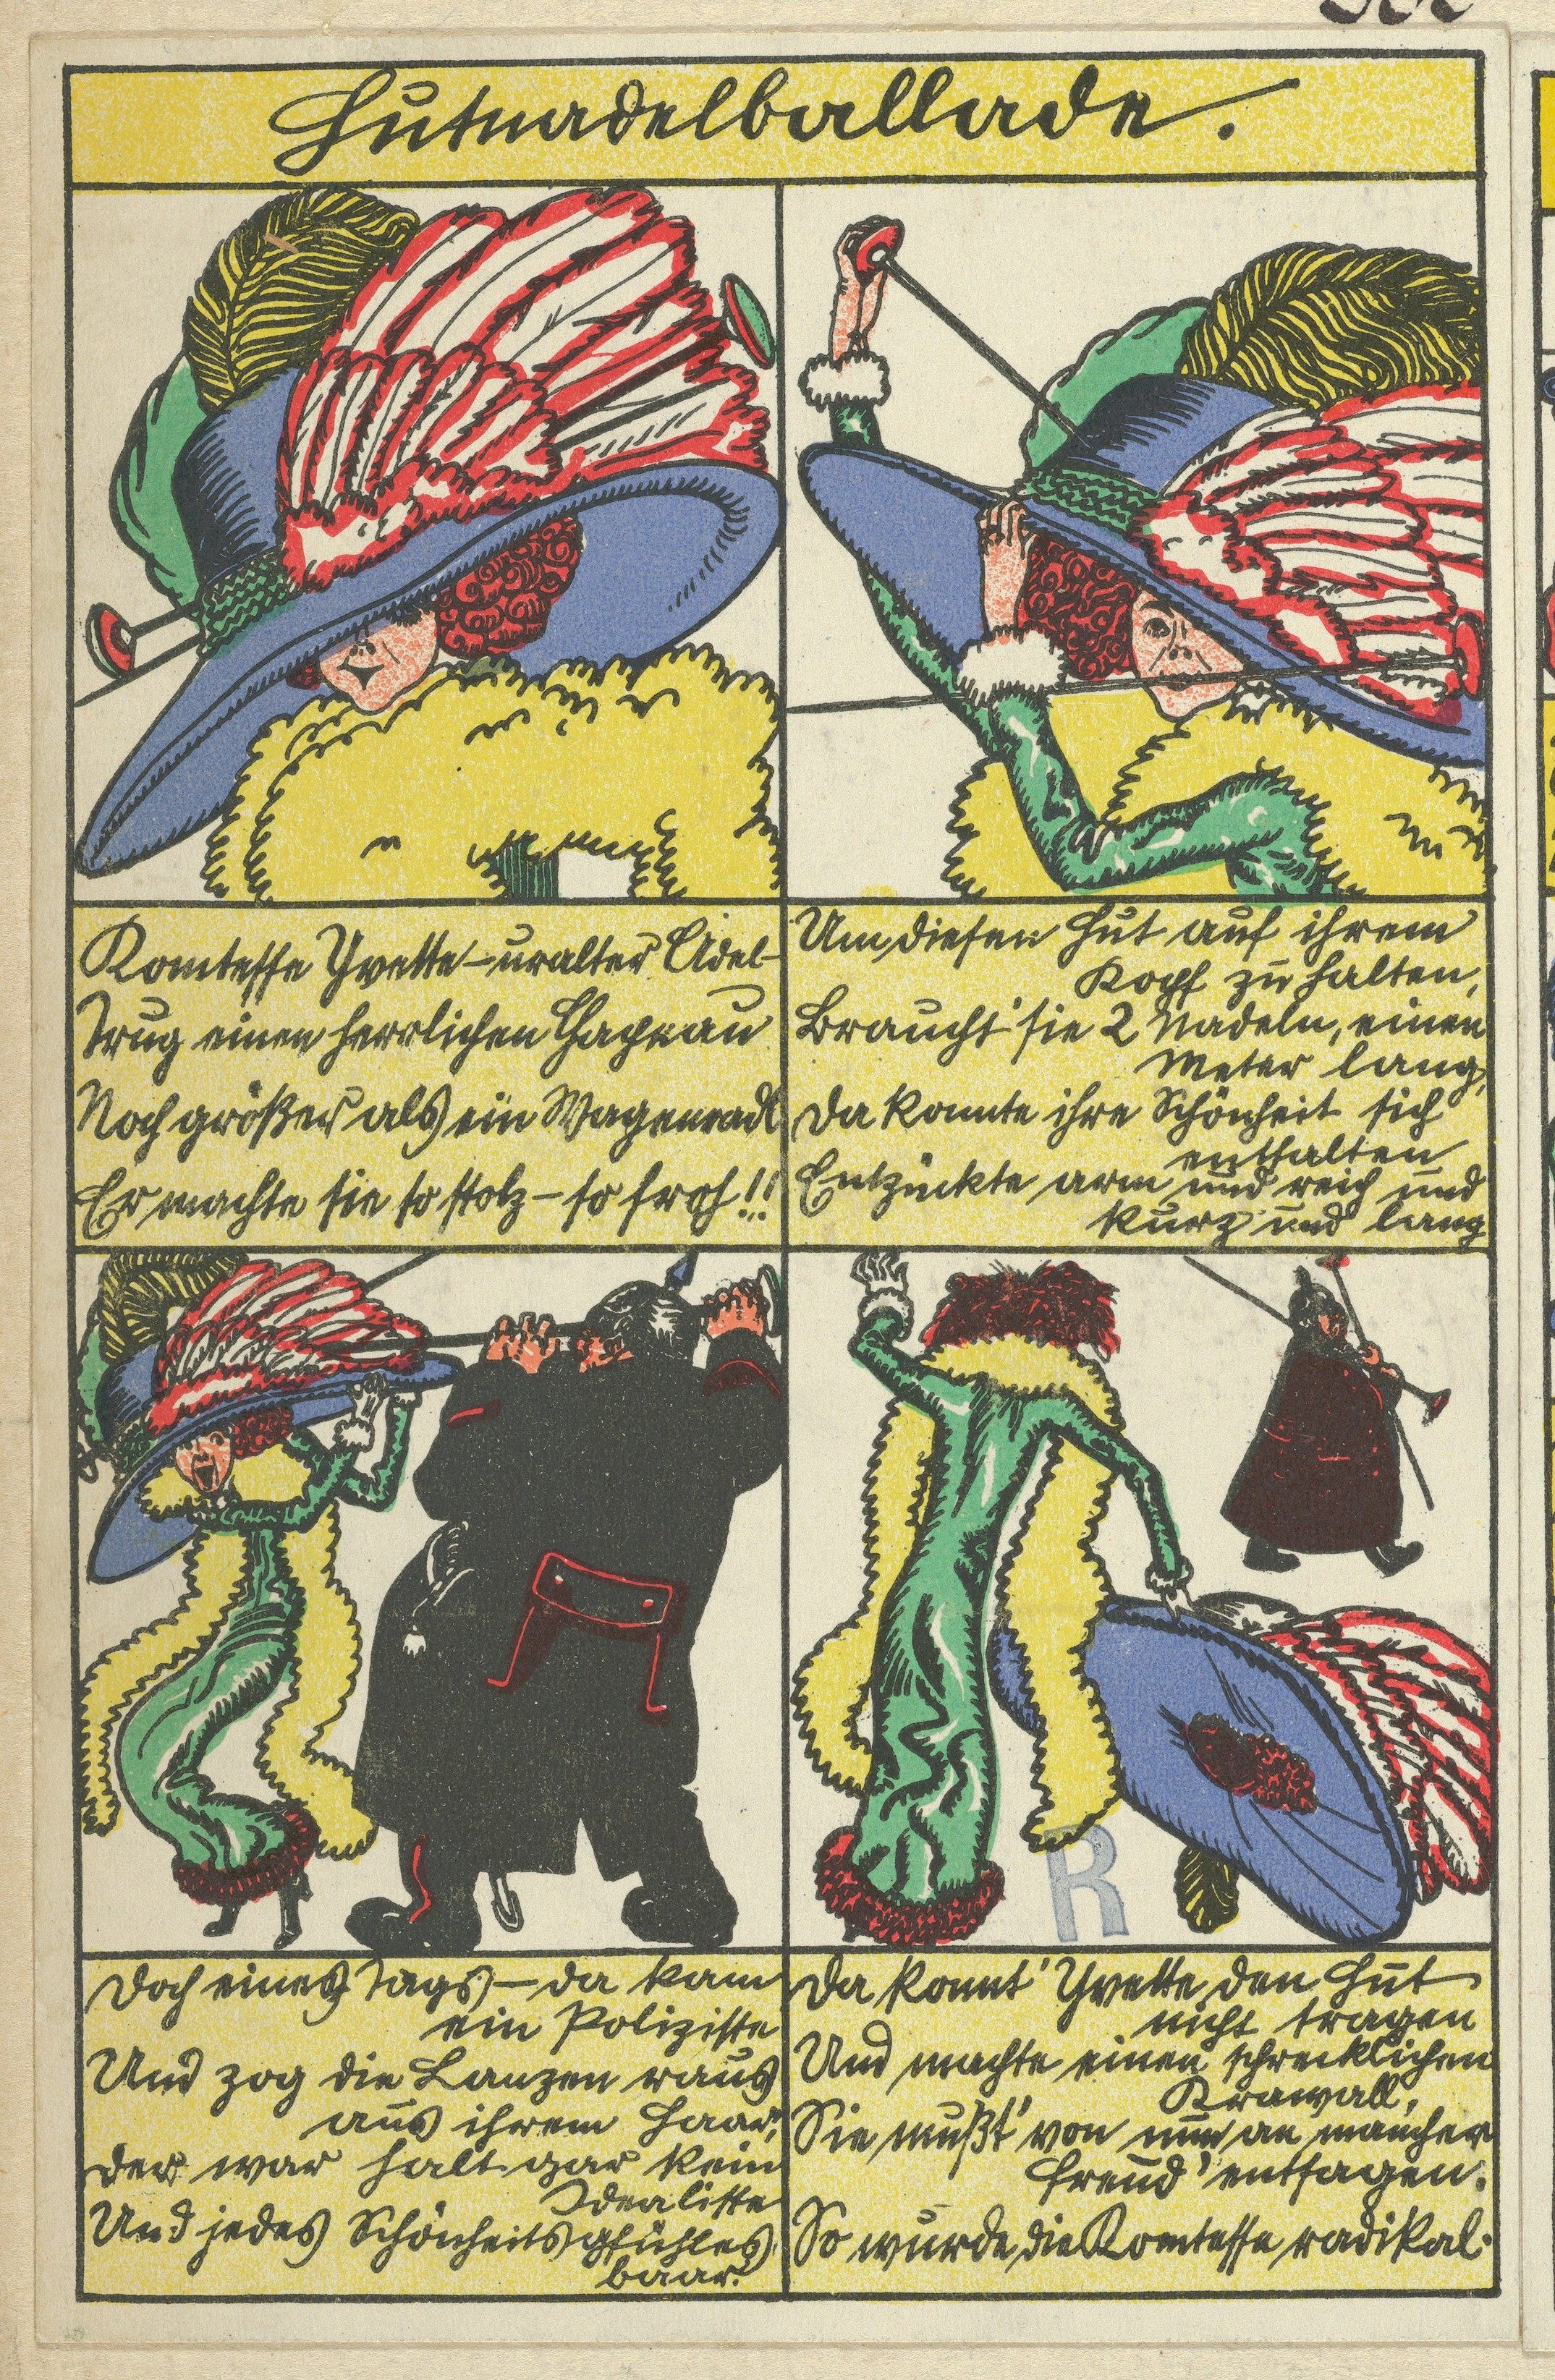 Hutnadelballade.
Komtesse Yvette – uralter Adel –
Trug einen herrlichen Chapeau
Noch größer als ein Wagenradl
Er machte sie so stolz – so froh!!
Um diesen Hut auf ihrem
Kopf zu halten,
Braucht' sie 2 Nadeln, einen
Meter lang,
Da konnte ihre Schönheit sich
entfalten
Entzückte arm und reich und
kurz und lang
Doch eines Tags – da kam
ein Poliziste
Und zog die Lanzen raus
aus ihrem Haar,
Der war halt gar kein
Idealiste
Und jedes Schönheitsgfühles
baar.
Da konnt' Yvette den Hut
nicht tragen
Und machte einen schrecklichen
Krawall,
Sie mußt' von nun an mancher
Freud' entsagen.
So wurde die Komtesse radikal.
R